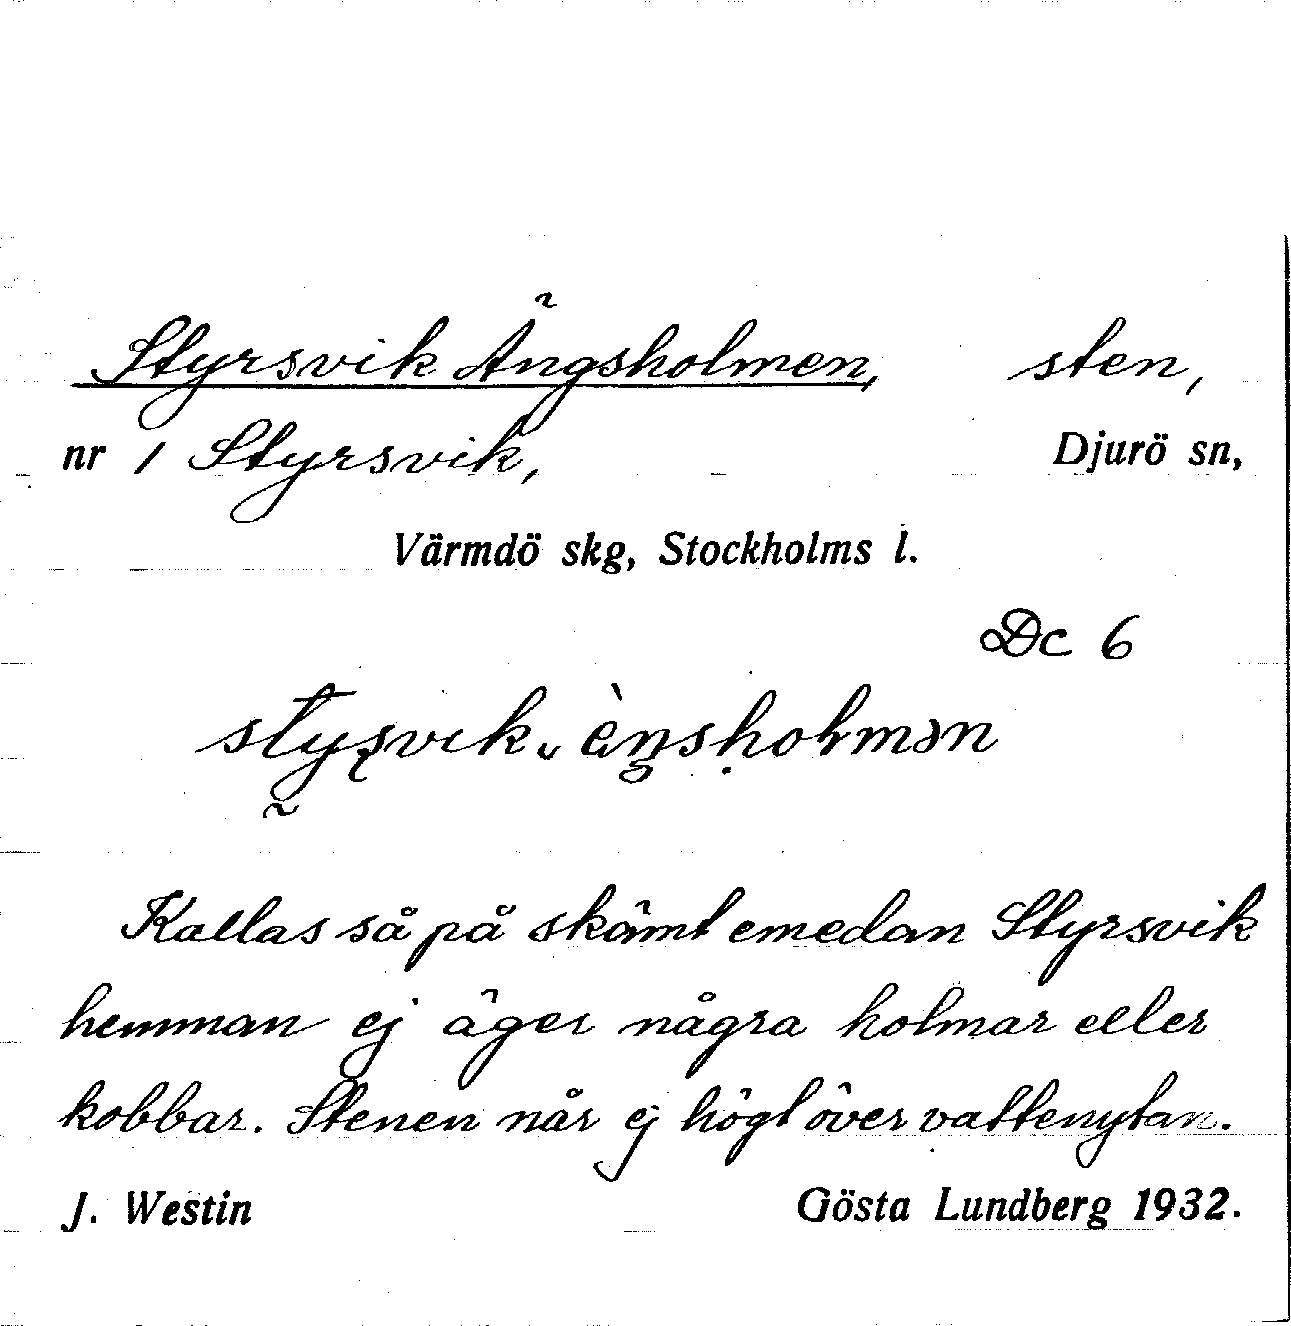 Styrsvik Ängsholmen, sten,
nr 1 Styrsvik, Djurö sn,
Värmdö skg, Stockholms l.
Dc 6
Kallas så på skämt emedan Styrsvik
hemman ej äger några holmar eller
kobbar. Stenen når ej högt över vattenytan.
J. Westin Gösta Lundberg 1932.